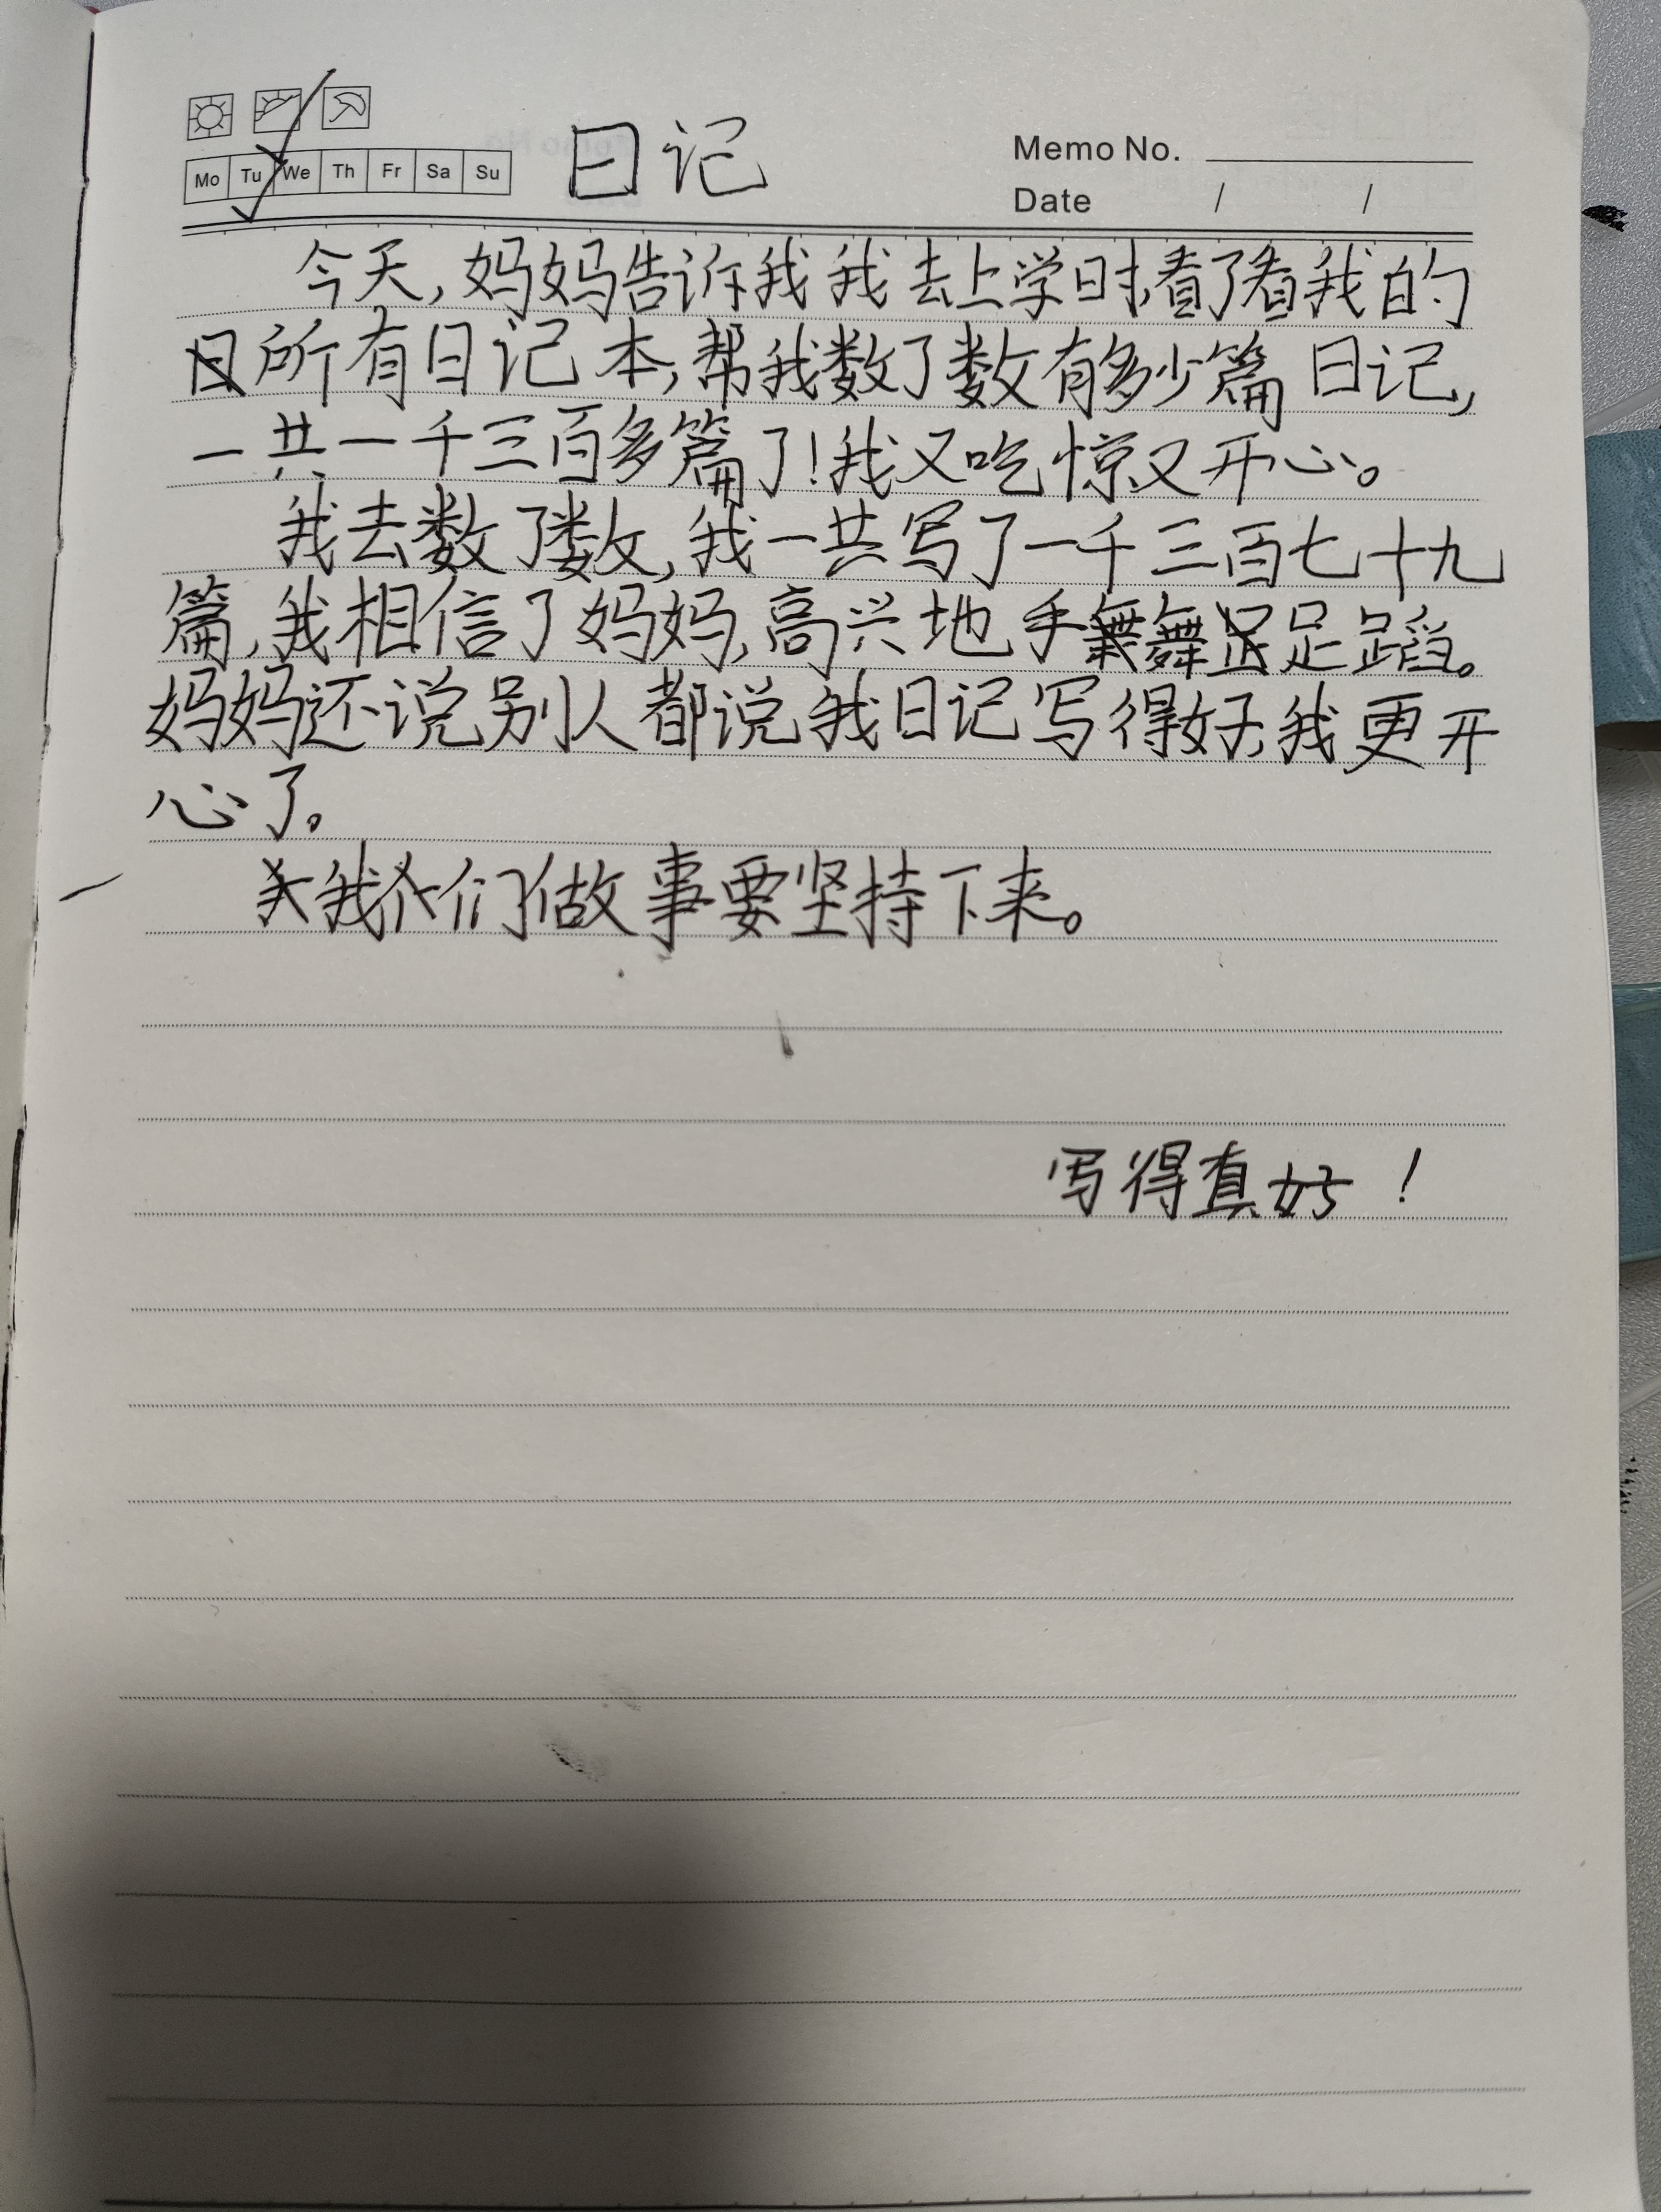 Mo Tu We Th Fr Sa Su
日记
Memo No.
Date / /
今天,妈妈告诉我我去上学时,看了看我的
所有日记本,帮我数了数有多少篇日记,
一共一千三百多篇了!我又吃惊又开心。
我去数了数,我一共写了一千三百七十九
篇,我相信了妈妈,高兴地手舞足蹈。
妈妈还说别人都说我日记写得好,我更开
心了。
我们做事要坚持下来。
写得真好!